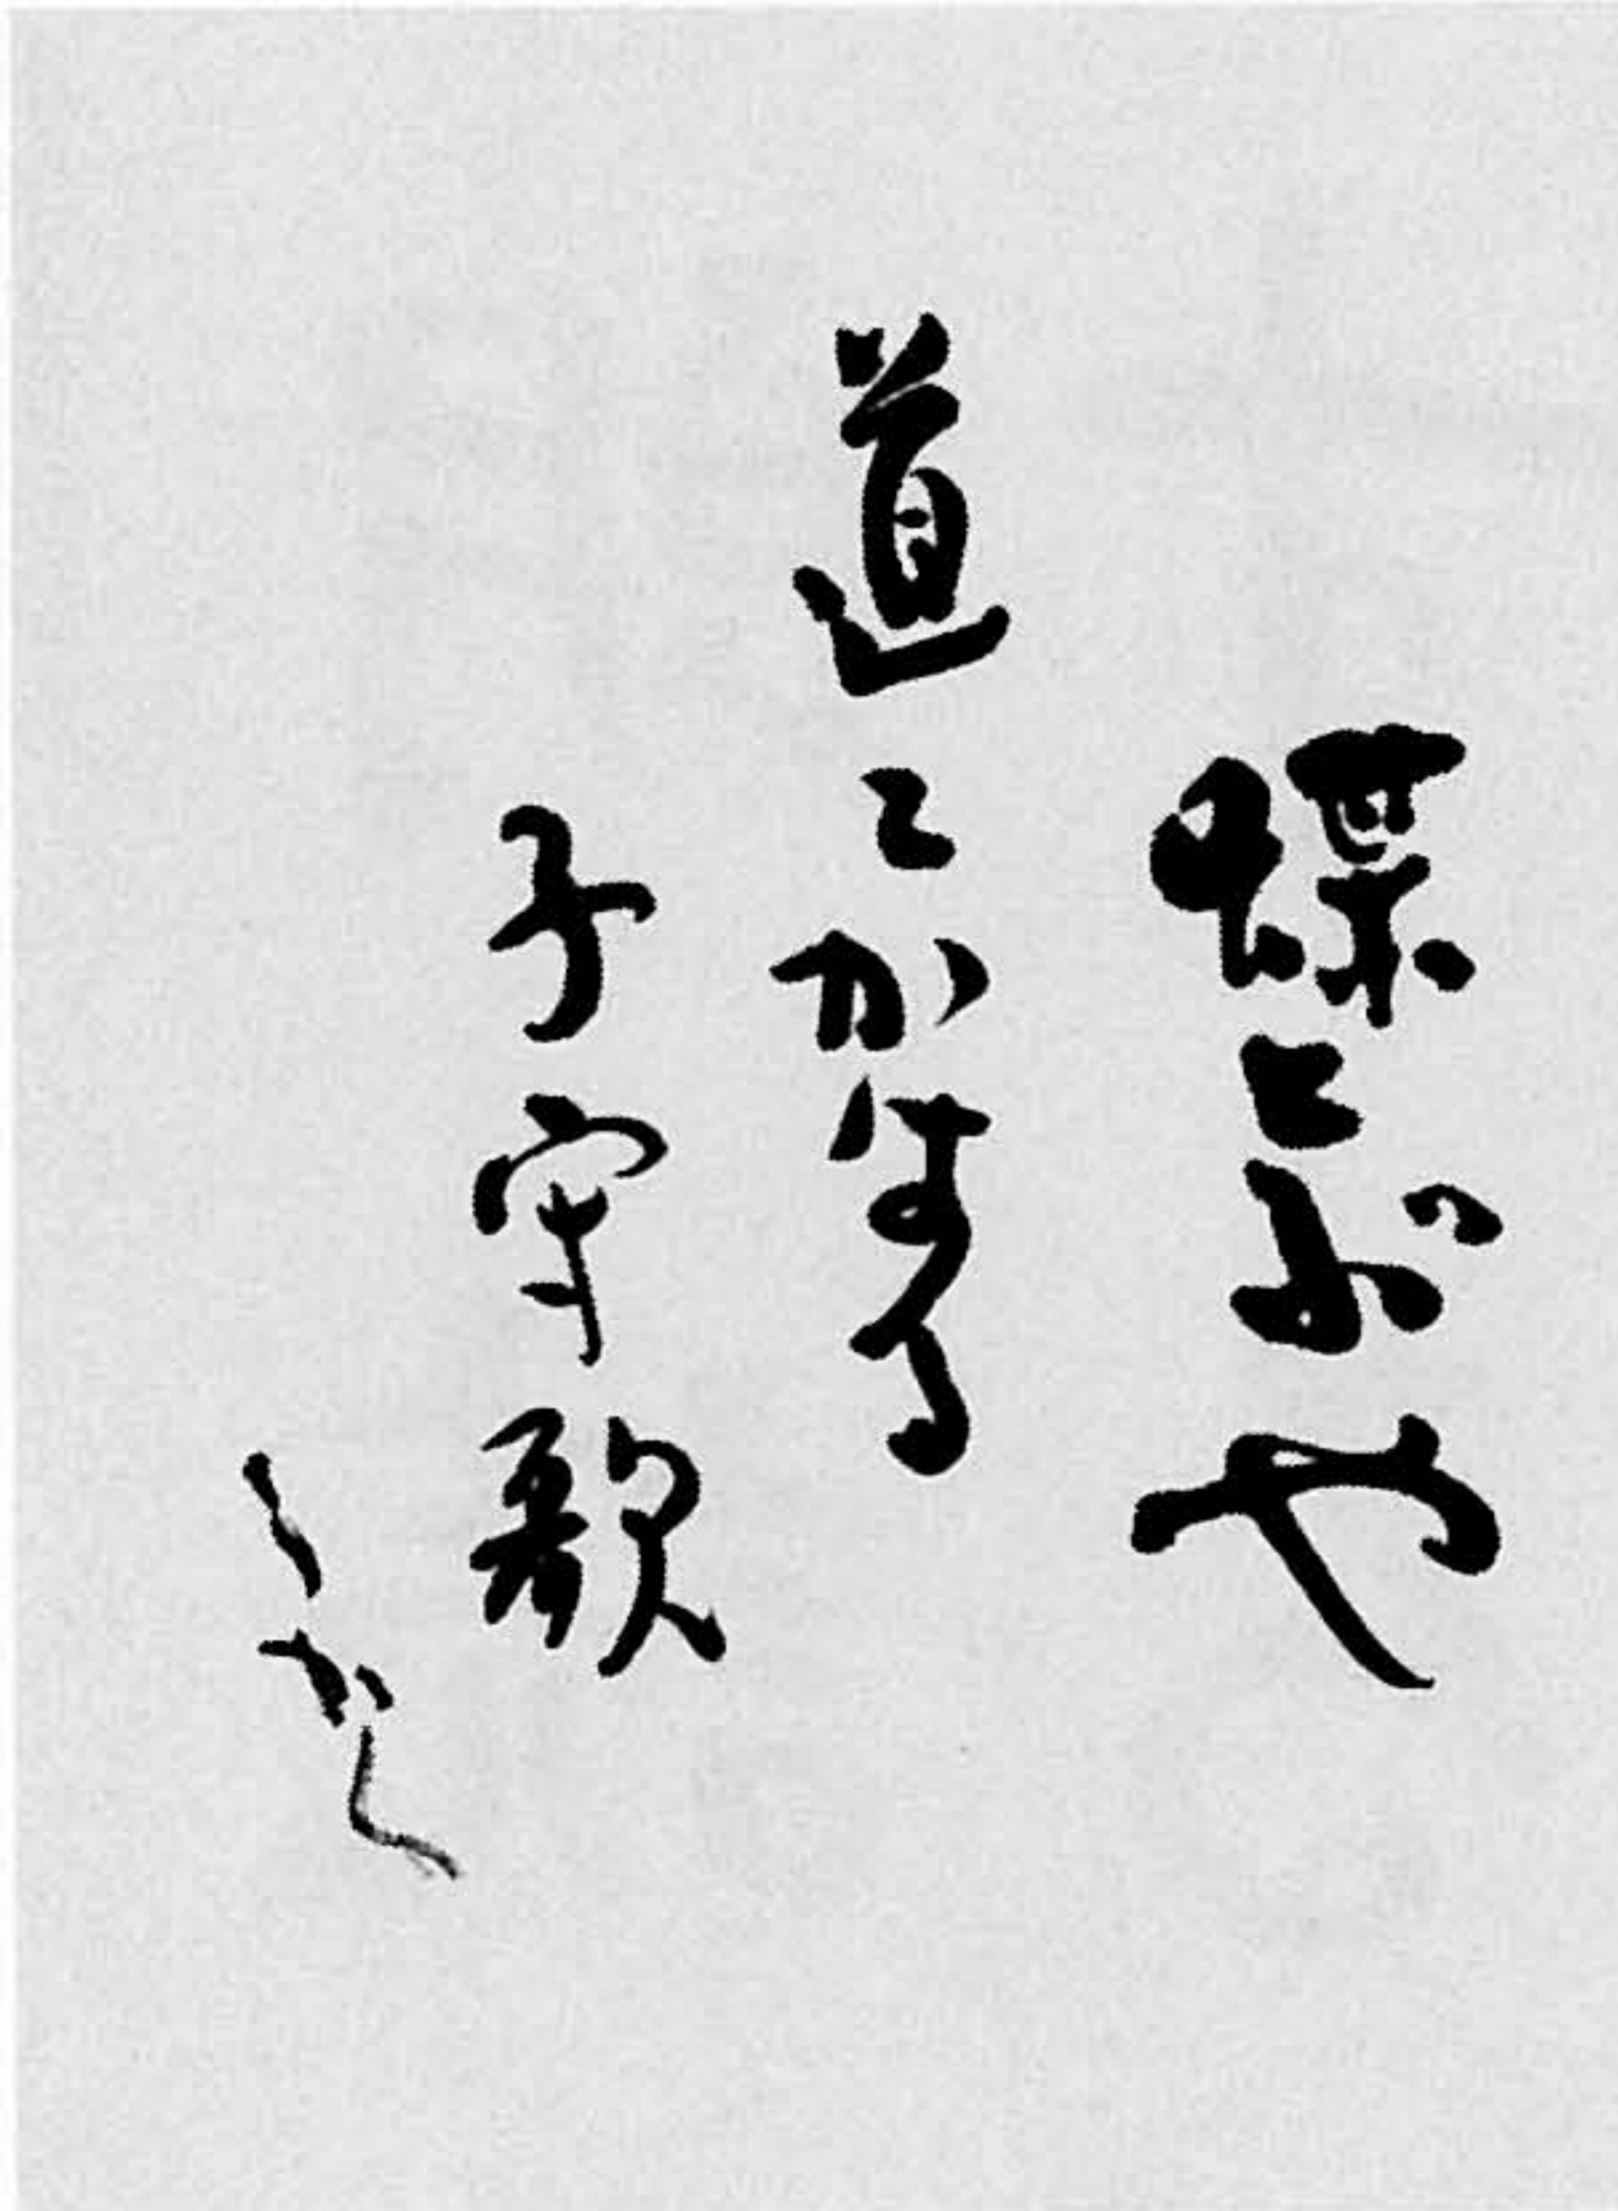 蝶とぶや
道々かはる
子守歌